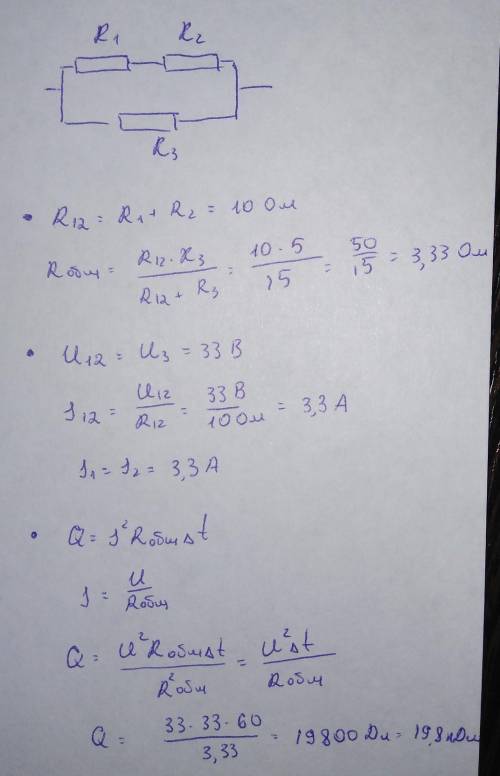 R₁ R₂
R₃
• R₁₂ = R₁ + R₂ = 10 Ом
Rобщ = R₁₂ · R₃ / R₁₂ + R₃ = 10 · 5 / 15 = 50 / 15 = 3,33 Ом
• U₁₂ = U₃ = 33 В
I₁₂ = U₁₂ / R₁₂ = 33 В / 10 Ом = 3,3 А
I₁ = I₂ = 3,3 А
• Q = I² Rобщ Δt
I = U / Rобщ
Q = U² Rобщ Δt / R²общ = U² Δt / Rобщ
Q = 33 · 33 · 60 / 3,33 = 19800 Дж = 19,8 кДж